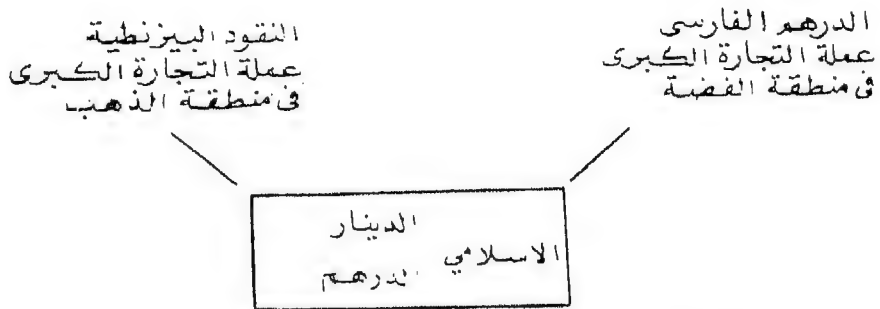 الدرهم الفارسى
عملة التجارة الكبرى
فى منطقة الفضة
النقود البيزنطية
عملة التجارة الكبرى
فى منطقة الذهب
الدينار
الاسلامي
الدرهم